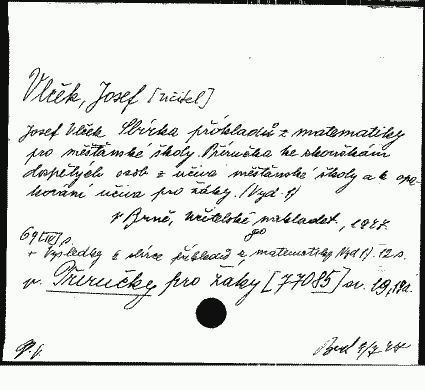 Vlček, Josef [učitel]
Josef Vlček Sbírka příkladů z matematiky
pro měšťanské školy. Příručka ke zkouškám
dospělých osob z učiva měšťanské školy a k opa-
kování učiva pro žáky. (Vyd. 1)
V Brně, Učitelské nakladat, 1947.
69 [IV] s.
+ Výsledky k sbírce příkladů z matematiky Vyd 1). 12 s.
v. Příručky pro žáky [77085] sv. 19,